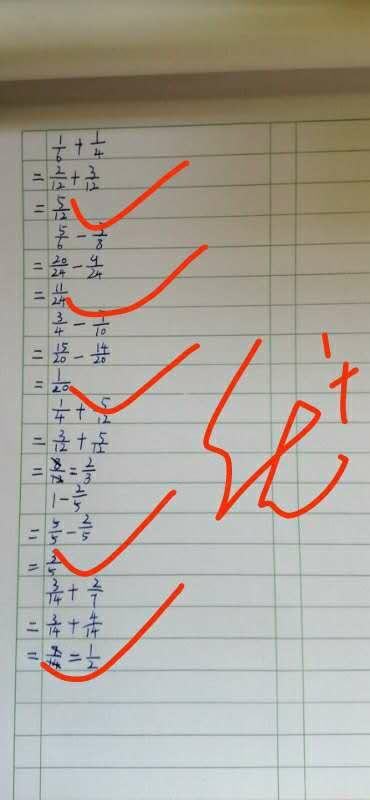 1/6 + 1/4
= 2/12 + 3/12
= 5/12
5/6 - 3/8
= 20/24 - 9/24
= 11/24
3/4 - 7/10
= 15/20 - 14/20
= 1/20
1/4 + 5/12
= 3/12 + 5/12
= 8/12 = 2/3
1 - 2/5
= 5/5 - 2/5
= 3/5
3/14 + 2/7
= 3/14 + 4/14
= 7/14 = 1/2